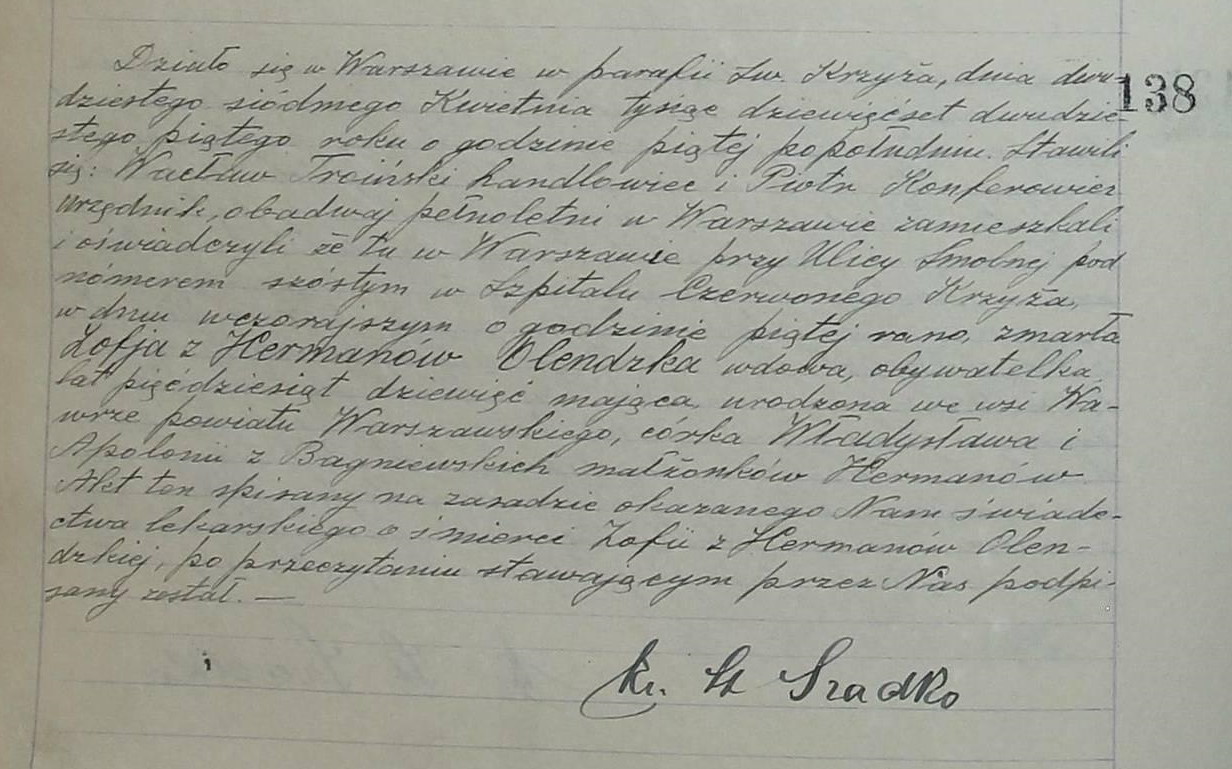 Działo się w Warszawie w parafii Św. Krzyża, dnia dwu-
138
dziestego siódmego Kwietnia tysiąc dziewięćset dwudzie-
stego piątego roku o godzinie piątej popołudniu. Stawili
się: Wacław Troiński handlowiec i Piotr Konferowicz
urzędnik, obadwaj pełnoletni w Warszawie zamieszkali
i oświadczyli że tu w Warszawie przy Ulicy Smolnej pod
nómerem szóstym w Szpitalu Czerwonego Krzyża,
w dniu wczorajszym o godzinie piątej rano, zmarła
Zofja z Hermanów Olendzka wdowa, obywatelka
lat pięćdziesiąt dziewięć mająca, urodzona we wsi Wa-
wrze powiatu Warszawskiego, córka Władysława i
Apolonii z Bagniewskich małżonków Hermanów.
Akt ten spisany na zasadzie okazanego Nam świade-
ctwa lekarskiego o śmierci Zofii z Hermanów Olen-
dzkiej, po przeczytaniu stawającym przez Nas podpi-
sany został. —
Ks. St Szadko